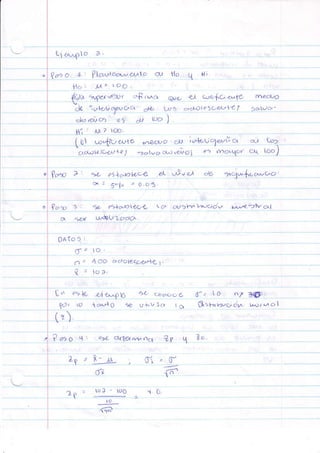 Ejemplo 2:
Paso 1: Planteamiento de Ho y Hi
Ho: μ = 100
(Un supervisor afirma que el coeficiente medio
de inteligencia de los adolescentes salva-
doreños es de 100)
Hi: μ > 100
(El coeficiente medio de inteligencia de los
adolescentes salvadoreños es mayor de 100)
Paso 2: Se establece el nivel de significancia
∝ = 5% = 0.05
Paso 3: Se establece la distribución muestral
a ser utilizada
DATOS:
σ = 10
n = 400 adolescentes
x̄ = 102
En este ejemplo se conoce σ = 10 n > 30
por lo tanto se utiliza la distribución normal
(z)
Paso 4: se determina Zp y Zc
Zp = x̄ - μ   σx̄ = σ
σx̄   √n
Zp = 102 - 100 =
10